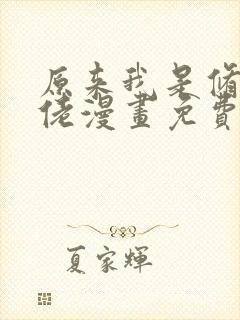 原来我是修
佬漫畫免費
夏家輝